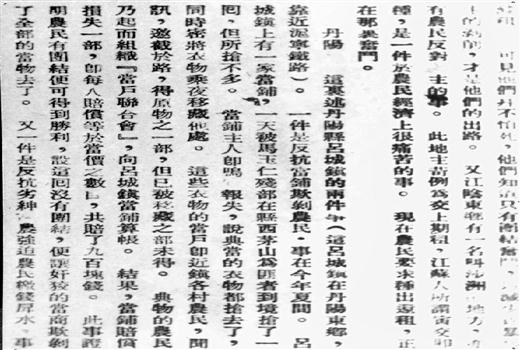 可見他們幷不怕,他們知道只有團結奮鬥,
上的剝削,才是他們的出路。 又江陰東鄉有一名叫沙洲的地方,
有農民反對 主的事。 此地主昔例為交上期租,江蘇人所謂寅交卯
種,是一件於農民經濟上很痛苦的事。 現在農民要求種出還租,正
在那裏奮鬥。
丹陽 這裏述丹陽縣呂城鎮的兩件爭(這呂城鎮在丹陽東鄉,
靠近泥寧鐵路)。 一件是反抗當鋪欺剝農民,事在今年夏間。 呂
城鎮上有一家當鋪,一天被馬玉仁殘部在縣西茅山為匪者到境搶了一
囘,但所搶不多。 當鋪主人卽鳴 報失,說典當的衣物都搶去了,
同時密將衣物乘夜移藏他處。 這些衣物的當戶卽近鎮各村農民,聞
訊,邀截於路,得原物之一部,但已被匿藏之部未得。 典物的農民
乃起而組織「當戶聯合會」,向呂城鎮當鋪算帳。 結果,當鋪賠償
損失一部,卽每人賠償等於當價之數,共賠了九百塊錢。 此事證
明農民有團結便可得到勝利,設這囘沒有團結,便讓奸狡的當商欺剝
了全部的當物去了。 又一件是反抗劣紳 農強迫農民繳錢戽水,事